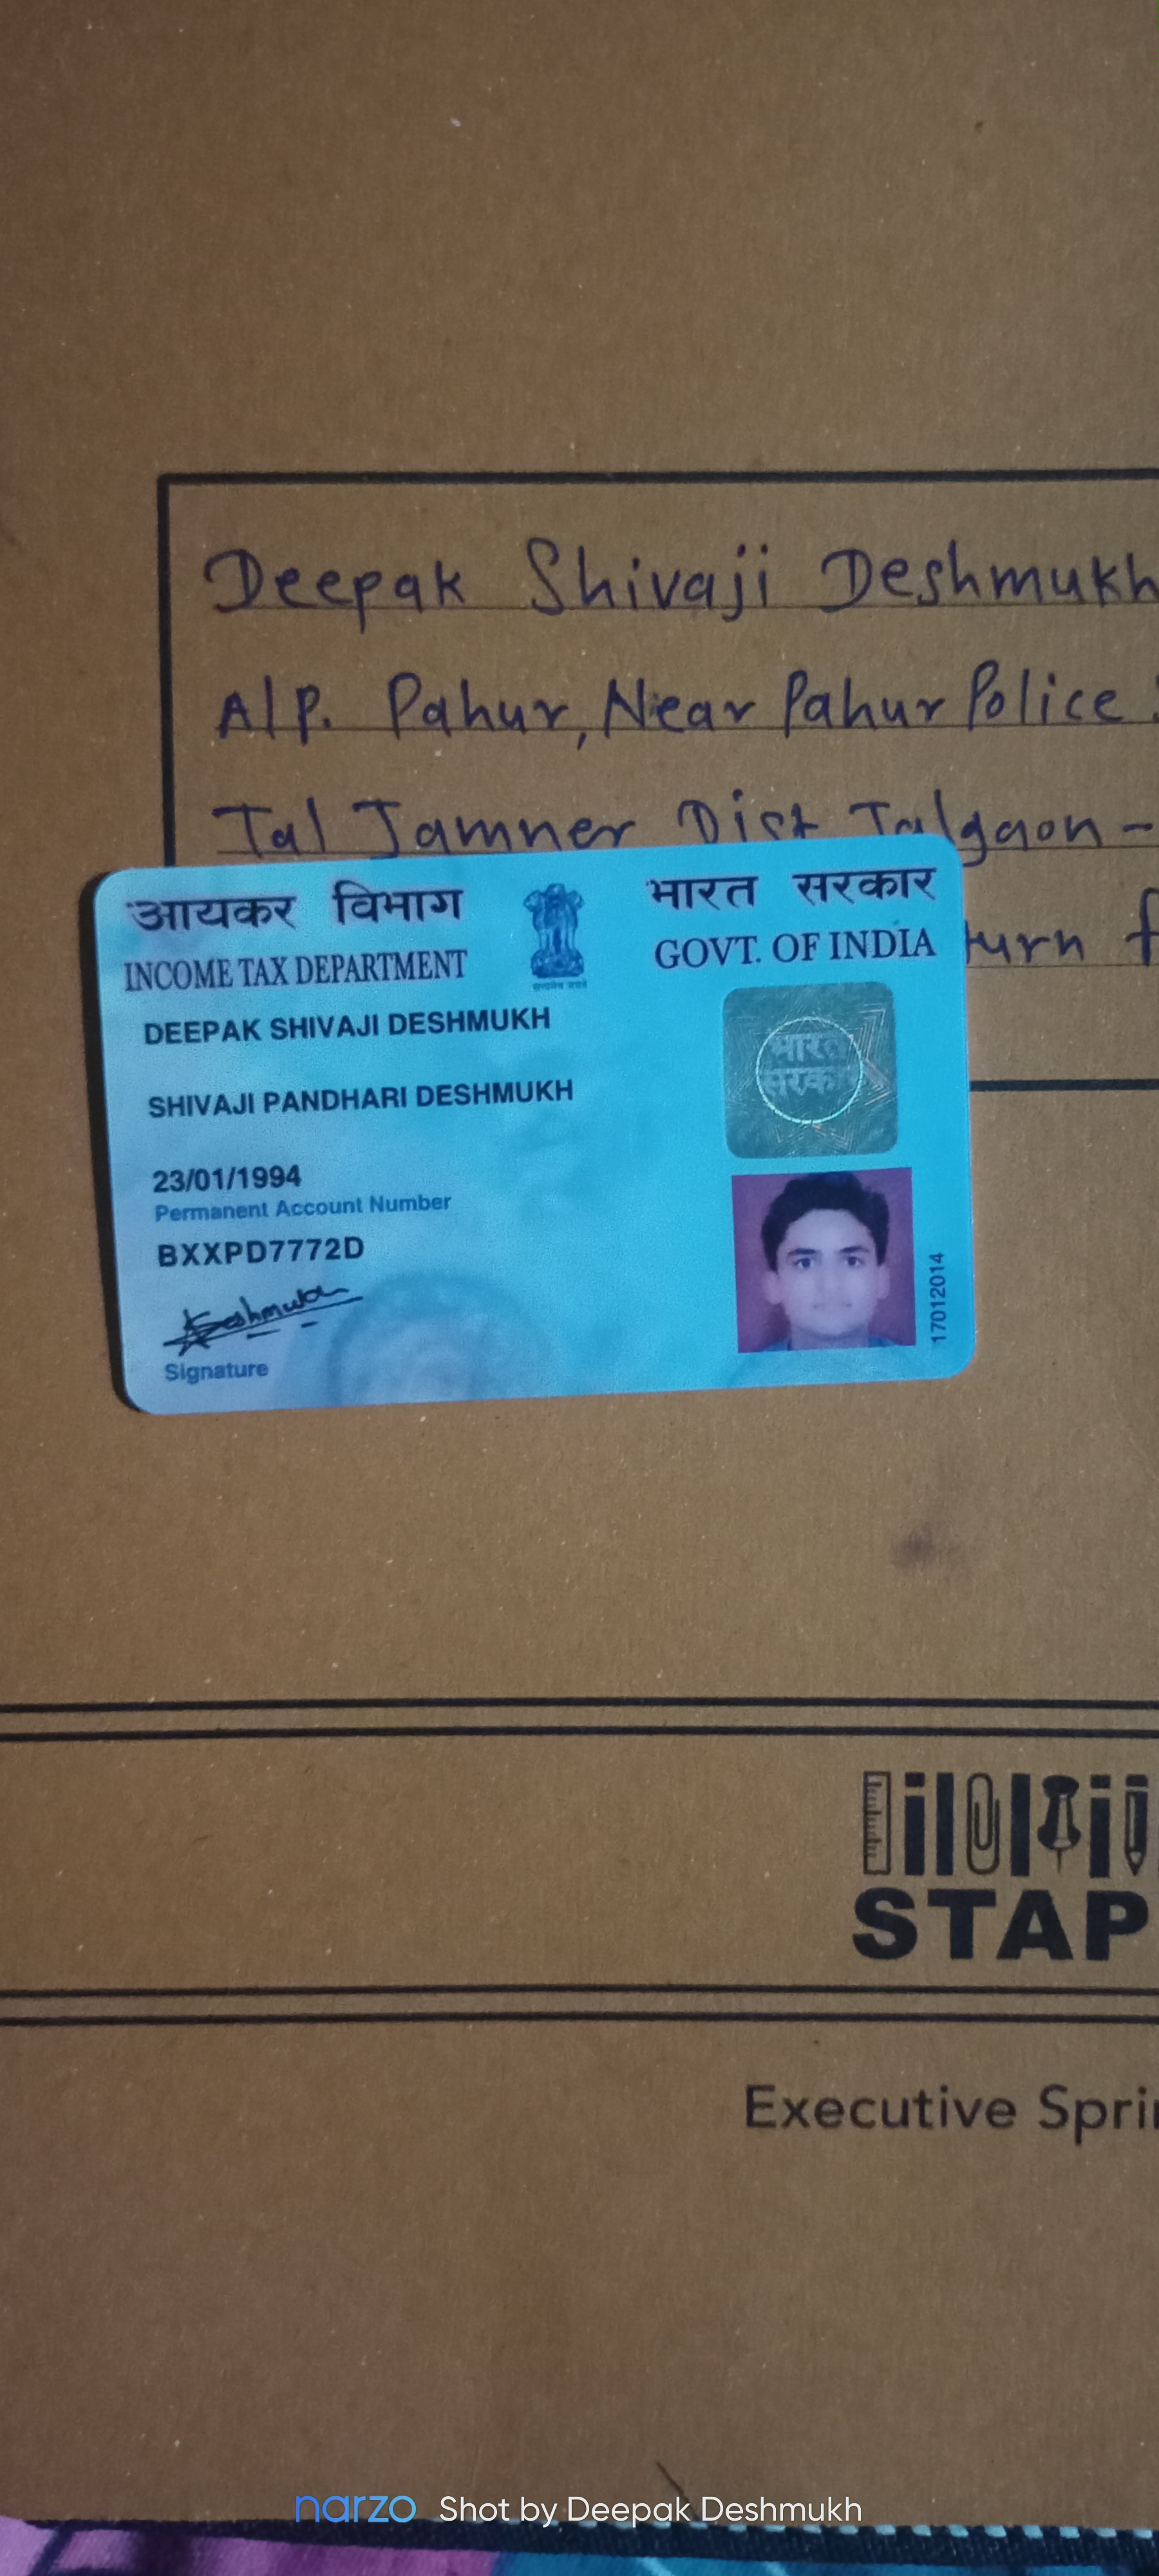 Deepak Shivaji Deshmukh
A/P. Pahur, Near Pahur Police
Tal Jamner Dist Jalgaon -
turn f
आयकर विभाग
INCOME TAX DEPARTMENT
सत्यमेव जयते
भारत सरकार
GOVT. OF INDIA
DEEPAK SHIVAJI DESHMUKH
SHIVAJI PANDHARI DESHMUKH
23/01/1994
Permanent Account Number
BXXPD7772D
Deshmukh
Signature
भारत
सरकार
17012014
STAP
Executive Sprin
narzo Shot by Deepak Deshmukh